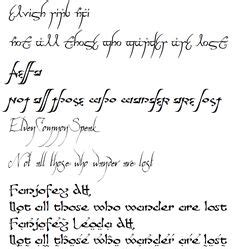 Elvish ring nfi
not all those who wander are lost
Not all those who wander are lost
ElvenCommon Speak
Not all those who wander are lost
Fanjofey AH,
Not all those who wander are lost
Fanjofey Leoda AH,
Not all those who wander are lost